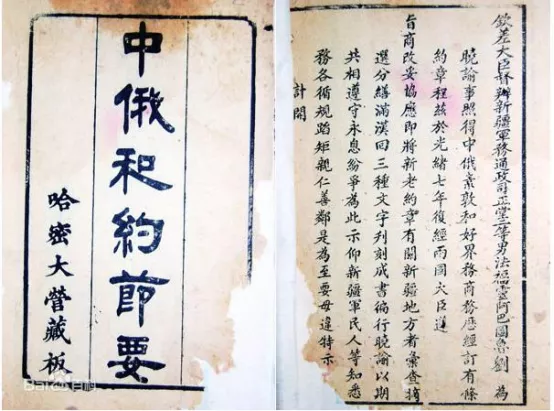 中俄和約節要
哈密大營藏板
欽差大臣督辦新疆軍務通政司正堂二等男法福靈阿巴圖魯劉 為
曉諭事照得中俄素敦和好界務商務歷經訂有條
約章程茲於光緒七年復經兩國大臣遵
旨商改妥協應即將新老約章有關新疆地方者彙查摘
選分繕滿漢回三種文字列刻成書徧行曉諭以期
共相遵守永息紛爭為此示仰新疆軍民人等知悉
務各循規蹈矩親仁善鄰是為至要毋違特示
計開
Bai 百科